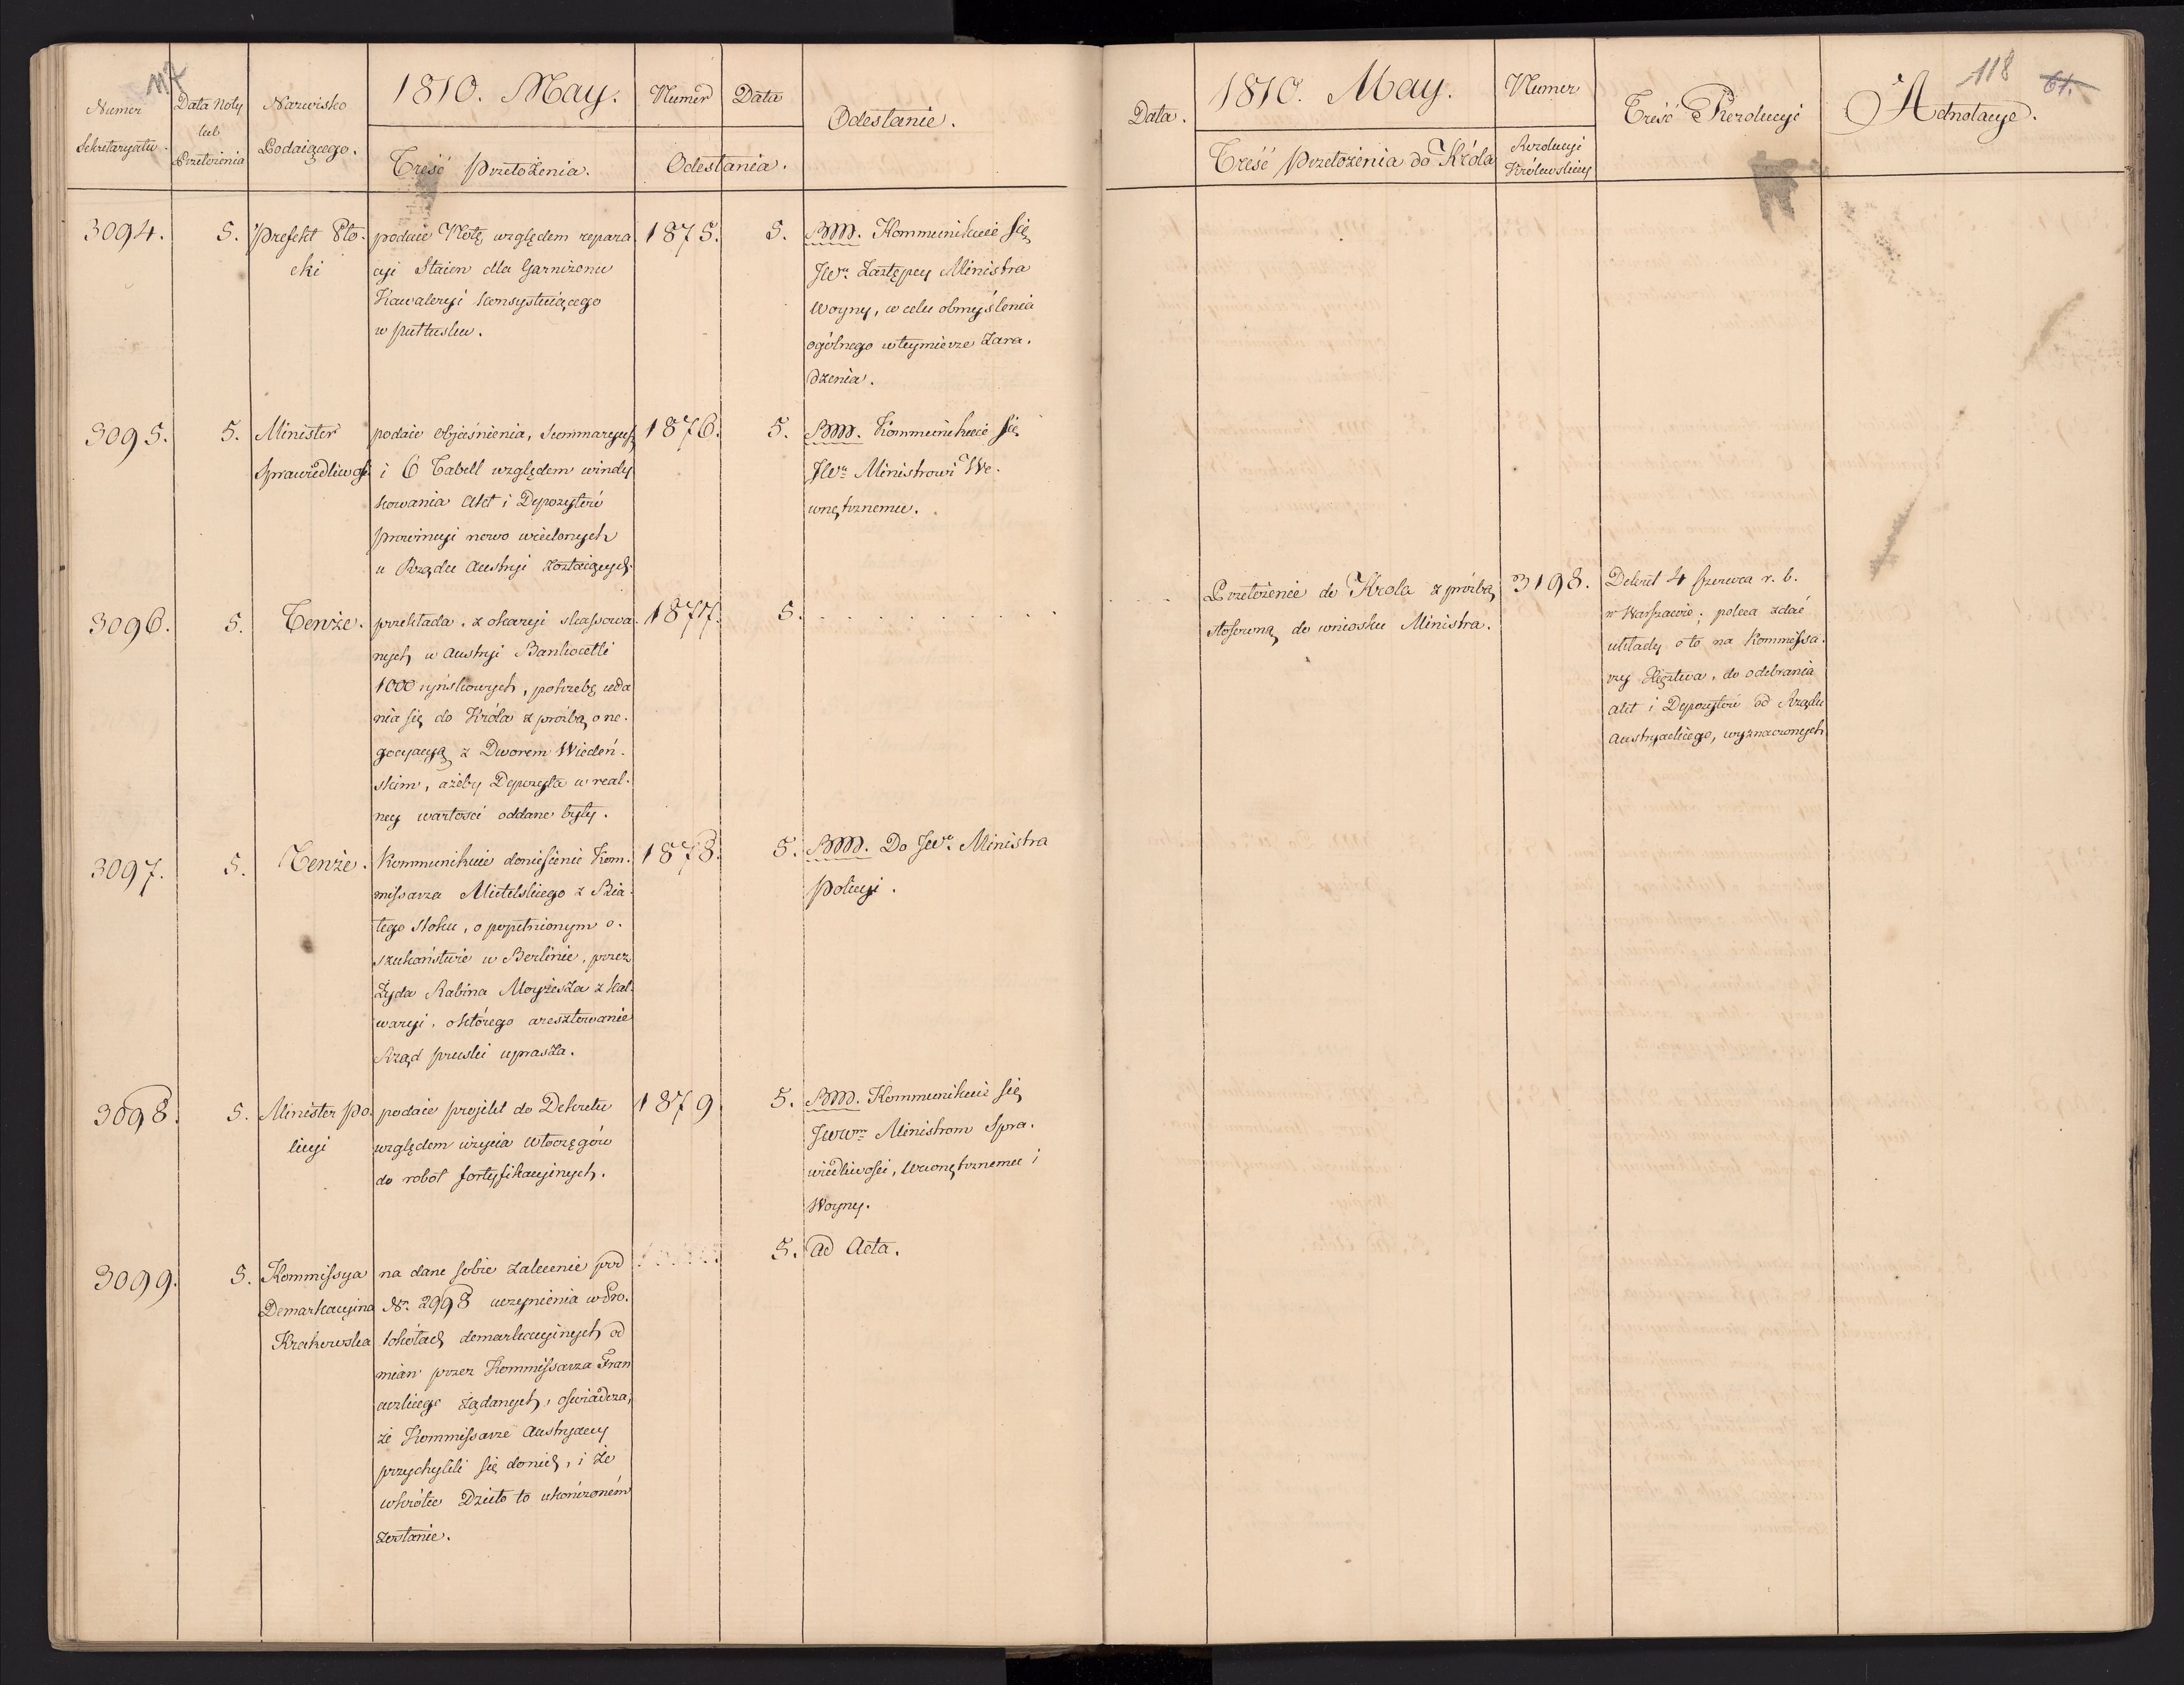 117
Numer
Sekretaryatu.
Data Noty
lub
Przełożenia
Nazwisko
Podaiącego.
1810. May.
Treść Przełożenia.
Numer
Data
Odesłania.
Odesłanie.
3094.
5.
Prefekt Pło-
cki
podaie Notę względem repara
cyi Staien dla Garnizonu
Kawaleryi konsystuiącego
w Pułtusku.
1875.
5.
BM. Kommunikuie się
JWu. Zastępcy Ministra
Woyny, w celu obmyślenia
ogólnego w teymierze Zara-
dzenia.
3095.
5.
Minister
Sprawiedliwości
podaie obiaśnienia, Summaryusz
i 6 Tabell względem windy
kowania Akt i Depozytów
Prowincyi nowo wcielonych
u Rządu Austryi zostaiących.
1876.
5.
BM. Kommunikuie się
JWu Ministrowi We-
wnętrznemu.
3096.
5.
Tenże.
przekłada, z okazyi skassowa-
nych w Austryi Bankocetli
1000 ryńskowych, potrzebę uda
nia się do Króla z prożbą o ne-
gocyacyą z Dworem Wiedeń-
skim, ażeby Depozyta w real-
ney wartosci oddane były.
1877.
5.
3097.
5.
Tenże.
Kommunikuie doniesienie Kom-
missarza Mielelskiego z Bia-
łego Stoku, o popełnionym o-
szukaństwie w Berlinie, przez
Żyda Rabina Moyżesza z Kal-
waryi, o którego aresztowanie
Rząd pruski uprasza.
1878.
5.
BM. Do JWo. Ministra
Policyi.
3098.
5.
Minister Po-
licyi
podaie projekt do Dekretu
względem użycia Włóczęgów
do robót fortyfikacyinych.
1879
5.
BM. Kommunikuie się
JWWm Ministrom Spra-
wiedliwości, Wewnętrznemu i
Woyny.
3099.
5.
Kommissya
Demarkacyina
Krakowska
na dane sobie zalecenie pod
Nr. 2998 uczynienia w Pro-
tokółach demarkacyinych od
mian przez Kommissarza Fran
cuzkiego żądanych, oświadcza,
że Kommissarze Austryaccy
przychylili się do nich, i że
wkrótce Dzieło to ukończoném
zostanie.
5.
ad Acta.
118
61.
Data.
1810. May.
Treść Przełożenia do Króla
Numer
Rezolucyi
Królewskiey
Treść Rezolucyi
Adnotacye.
Przełożenie do Krola z prożbą
stosowną do wniosku Ministra.
3198.
Dekret 4 Czerwca r. b.
w Warszawie; poleca zdać
układy o to na Kommissa-
rzy Xięztwa, do odebrania
akt i Depozytów od Rządu
Austryackiego, wyznaczonych